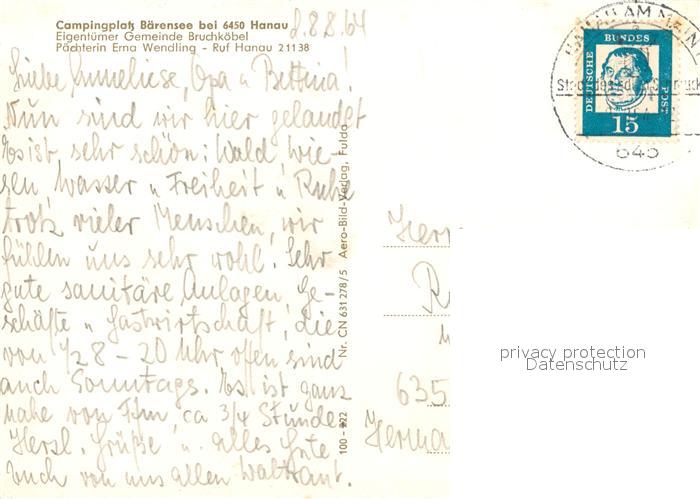 Campingplatz Bärensee bei 6450 Hanau
Eigentümer Gemeinde Bruchköbel
Pächterin Erna Wendling - Ruf Hanau 21138
8.8.64
Liebe Anneliese, Opa u Bettina!
Nun sind wir hier gelandet
Es ist sehr schön: Wald, Wie-
sen, Wasser u Freiheit u Ruhe
trotz vieler Menschen, wir
fühlen uns sehr wohl. Sehr
gute sanitäre Anlagen, Ge-
schäfte u Gastwirtschaft, die
von 1/2 8 - 20 Uhr offen sind
auch Sonntags. Es ist ganz
nahe von Ffm, ca 3/4 Stunde
Herzl. Grüße u. alles Gute
Euch von uns allen Waltraut.
100 - 222 Nr. CN 631 278/5 Aero-Bild-Verlag, Fulda
HANAU AM MAIN
645
DEUTSCHE
BUNDES
POST
15
Herr
R
635
Herma
privacy protection
Datenschutz